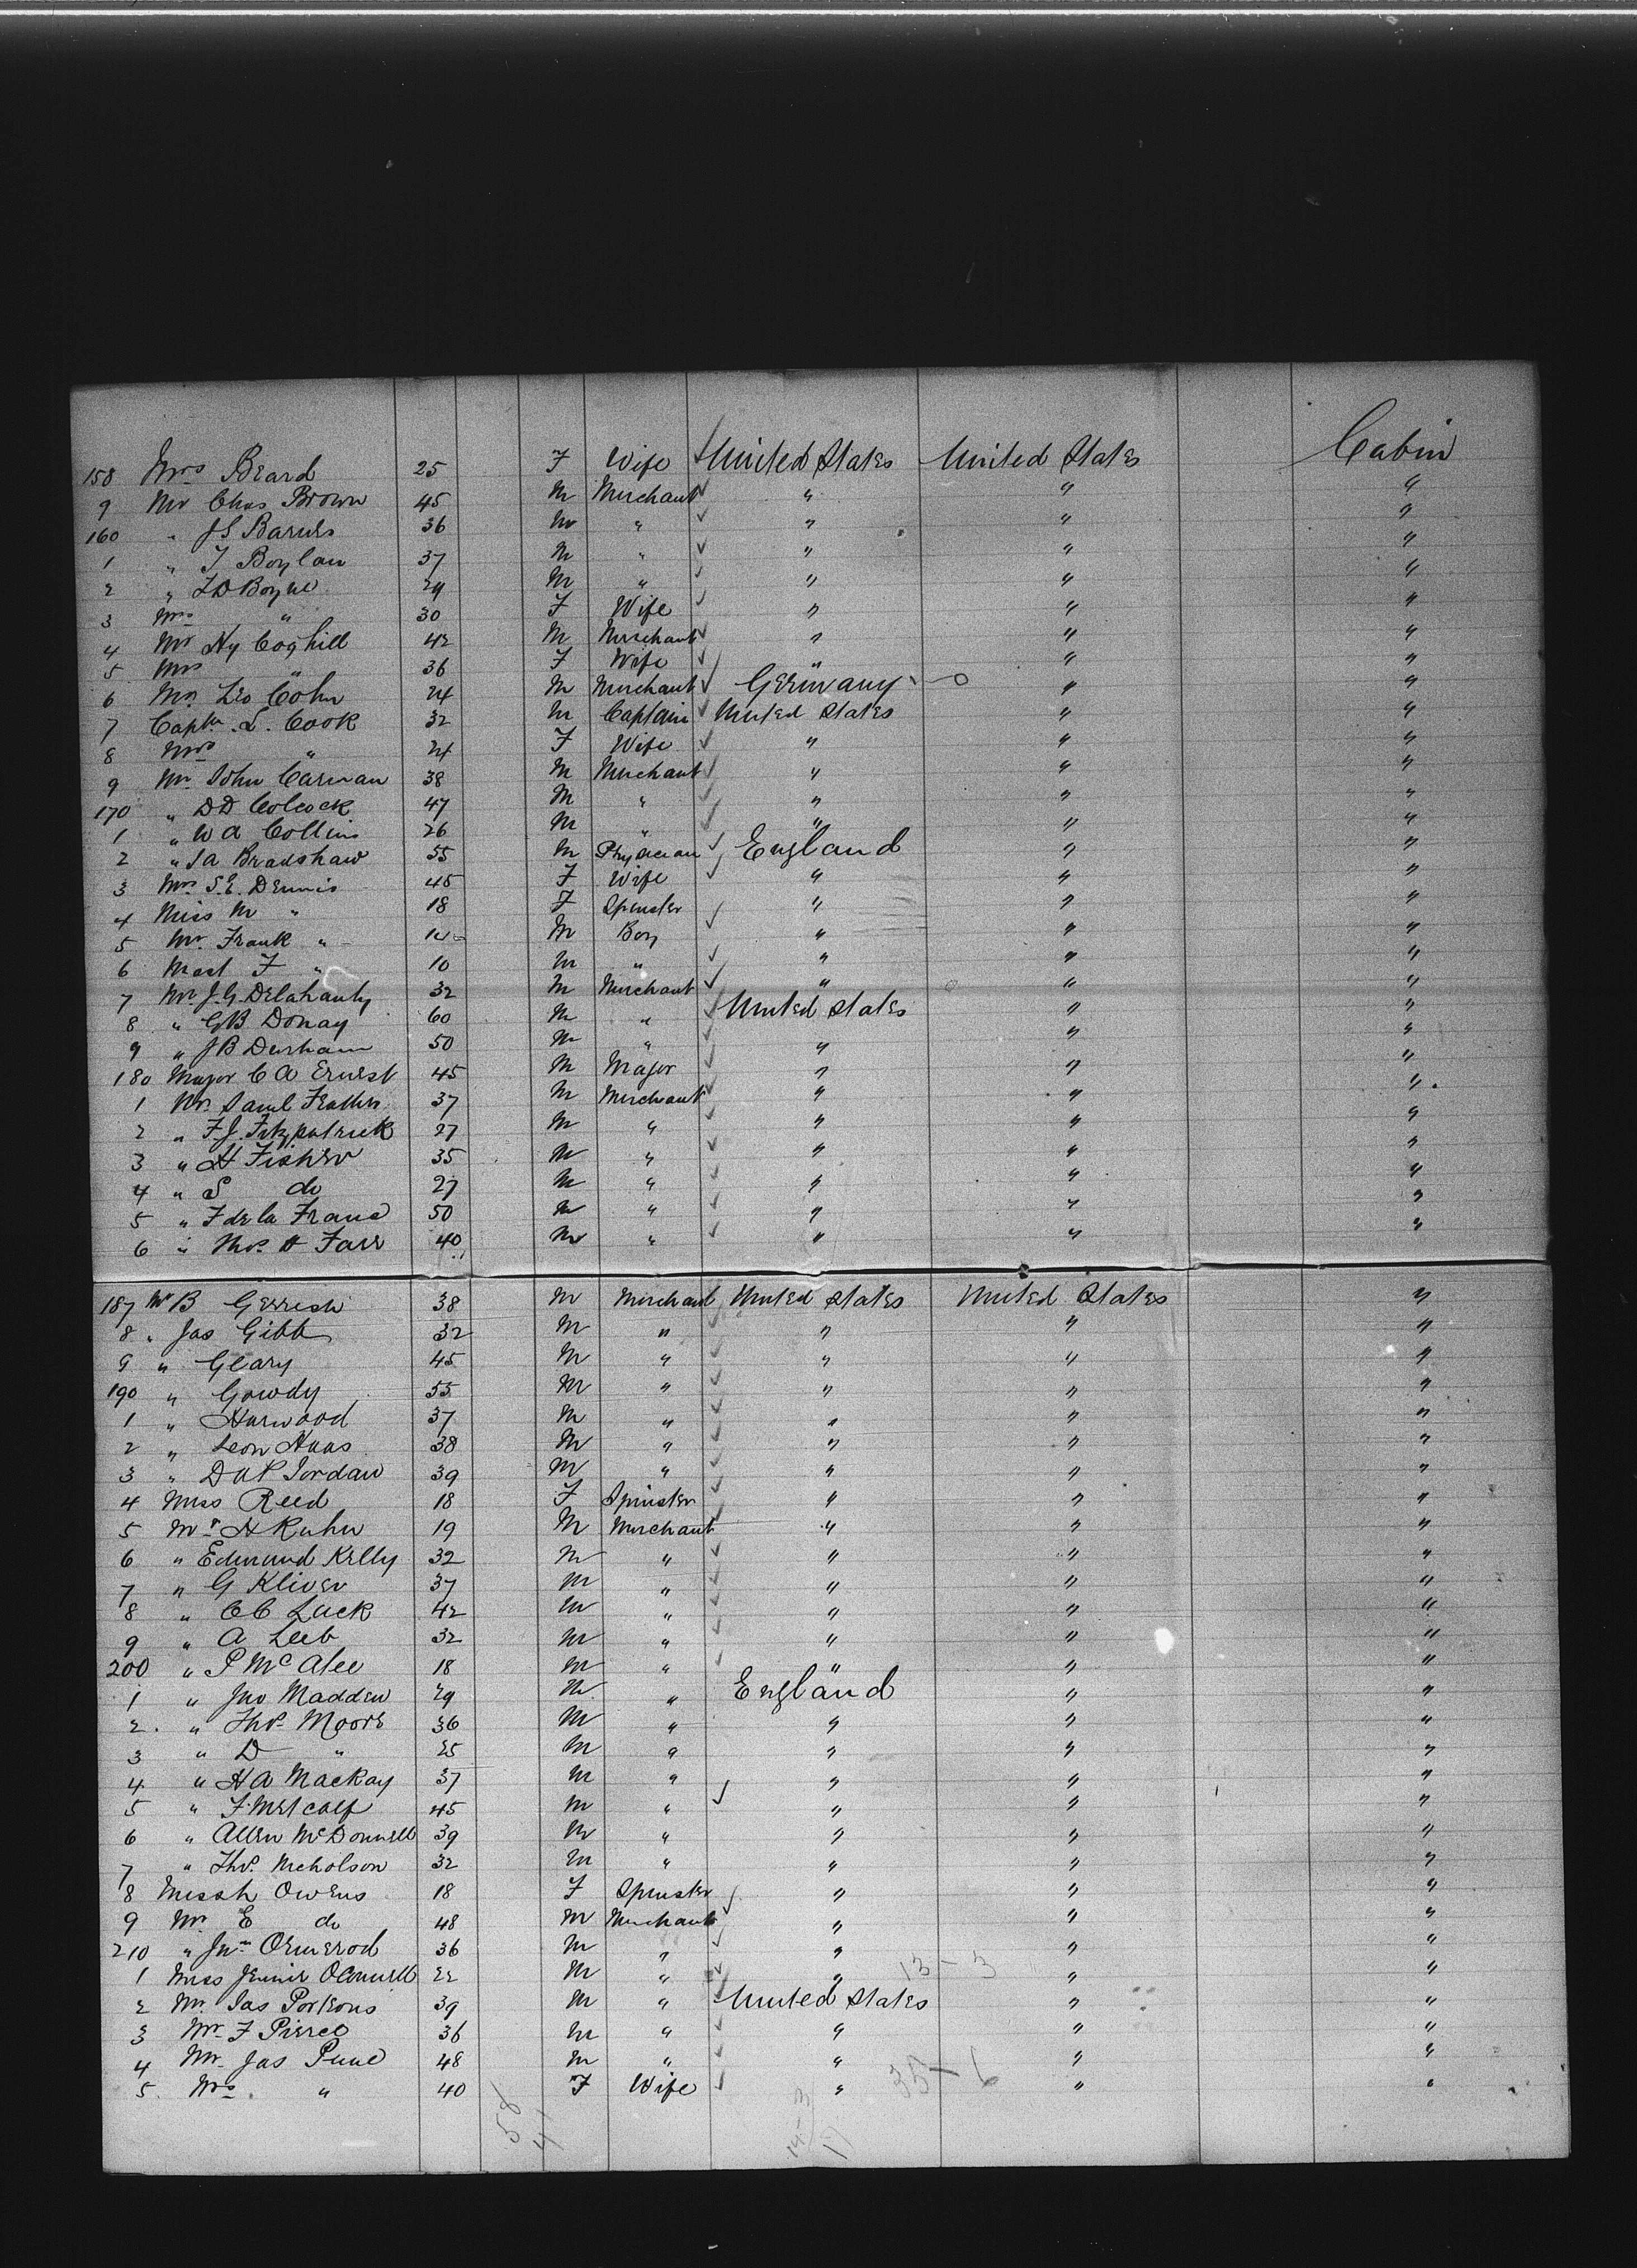 158 Mrs Beard 25 F Wife United States United States Cabin
9 Mr Chas Brown 45 M Merchant " " "
160 " J S Barnes 36 M " " " "
1 " T Boylan 37 M " " " "
2 " Boyne 29 M " " " "
3 Mrs " 30 F Wife " " "
4 Mr Hy Coghill 42 M Merchant " " "
5 Mrs " 36 F Wife " " "
6 Mr. Leo Cohn 24 M Merchant Germany " "
7 Captn. L. Cook 32 M Captain United States " "
8 Mrs " 24 F Wife " " "
9 Mr. John Carman 38 M Merchant " " "
170 " D D Colcock 47 M " " " "
1 " W A Collins 26 M " " " "
2 " J A Bradshaw 55 M Physician England " "
3 Mrs S. E. Dennis 45 F Wife " " "
4 Miss M " 18 F Spinster " " "
5 Mr. Frank " M Boy " " "
6 Mast F " 10 M " " " "
7 Mr. J. G. Delahanty 32 M Merchant " " "
8 " G B Donay 60 M " United States " "
9 " J B Durham 50 M " " " "
180 Major C A Ernest 45 M Major " " "
1 Mr. Saml 37 M Merchant " " "
2 " F. J. Fitzpatrick 27 M " " " "
3 " H Fisher 35 M " " " "
4 " S do 27 M " " " "
5 " F de la 50 M " " " "
6 " Thos. H Farr 40 M " " " "
187 Mr B Gerrish 38 M Merchant United States United States "
8 " Jas Gibb 32 M " " " "
9 " Geary 45 M " " " "
190 " Gowdy 55 M " " " "
1 " Harwood 37 M " " " "
2 " Leon Haas 38 M " " " "
3 " Jordan 39 M " " " "
4 Miss Reed 18 F Spinster " " "
5 Mr. H Kuhn 19 M Merchant " " "
6 " Edmund Kelly 32 M " " " "
7 " G Kliver 37 M " " " "
8 " C C Luck 42 M " " " "
9 " A Leeb 32 M " " " "
200 " P McAlee 18 M " " " "
1 " Jno Madden 29 M " England " "
2 " Thos. Moore 36 M " " " "
3 " D " 25 M " " " "
4 " H A Mackay 37 M " " " "
5 " F. Metcalf 45 M " " " "
6 " Allen McDonnell 39 M " " " "
7 " Thos. Nicholson 32 M " " " "
8 Miss h Owens 18 F Spinster " " "
9 Mr. E do 48 M Merchant " " "
210 " Jno. Ormerod 36 M " " " "
1 Miss Jennie OConnell 22 M " " 13 - 3 " "
2 Mr. Jas Parsons 39 M " United States " "
3 Mr. F Pierce 36 M " " " "
4 Mr. Jas 48 M " " " "
5 Mrs. " 40 F Wife " 35 - 6 " "
58
41